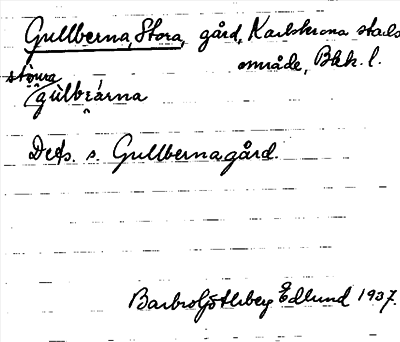 Gullberna, Stora, gård, Karlskrona stads
område, Blek. l.
stọura
gùlbɛárna
Dets. s. Gullbernagård.
Barbro Edlund 1937.